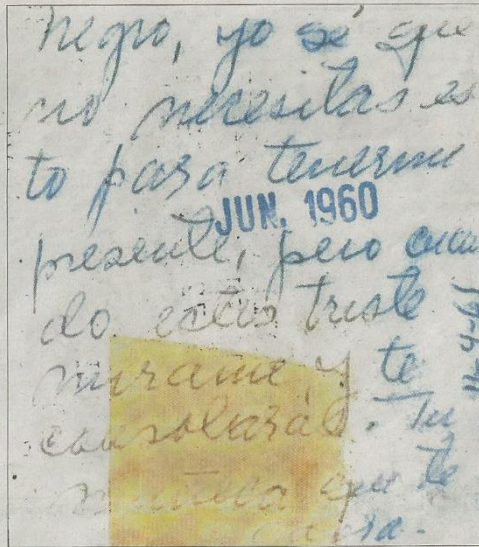 negro, yo sé que
no necesitas es
to para tenerme
JUN. 1960
presente, pero cuan
do estés triste
mirame y te
consolarás. Tu
muñeca que te